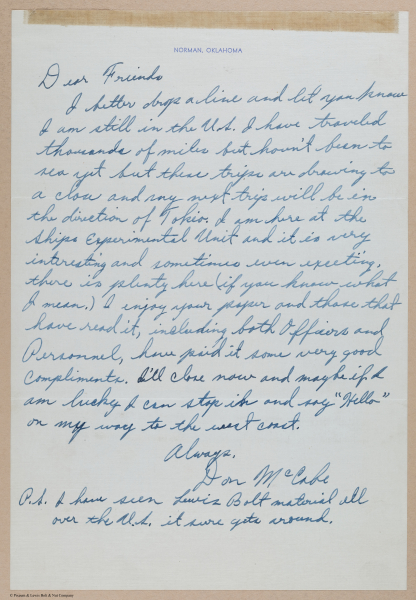 NORMAN, OKLAHOMA
Dear Friends
I better drop a line and let you know
I am still in the U.S. I have traveled
thousands of miles but haven't been to
sea yet but these trips are drawing to
a close and my next trip will be in
the direction of Tokio. I am here at the
Ships Experimental Unit and it is very
interesting and sometimes even exceting,
there is plenty here (if you know what
I mean.) I enjoy your paper and those that
have read it, including both Officers and
Personnel, have paid it some very good
compliments. I'll close now and maybe if I
am lucky I can stop in and say "Hello"
on my way to the west coast.
Always,
Don McCabe
P.S. I have seen Lewis Bolt material all
over the U.S. it sure gets around.
© Pioneer & Lewis Bolt & Nut Company